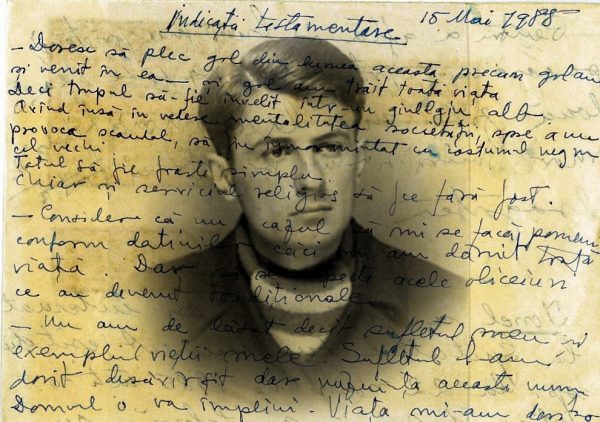 Indicații testamentare 15 Mai 1988
- Doresc să plec gol din lumea aceasta, precum gol am
și venit în ea - și gol am trăit toată viața
Deci trupul să-fie învelit într-un giulgiu alb.
Având însă în vedere mentalitatea societății, spre a nu
provoca scandal, să fiu înmormîntat cu costumul negru
cel vechi.
Totul să fie foarte simplu.
Chiar și serviciul religios să fie fără fast.
- Consider că nu e cazul să mi se facă pomeni
conform datinilor căci am dăruit toată
viața. Dar să se respecte acele obiceiuri
ce au devenit tradiționale
- Nu am de lăsat decît sufletul meu și
exemplul vieții mele. Sufletul l-am
dorit desăvîrșit dar numai la această
Domnul o va împlini - Viața mi-am